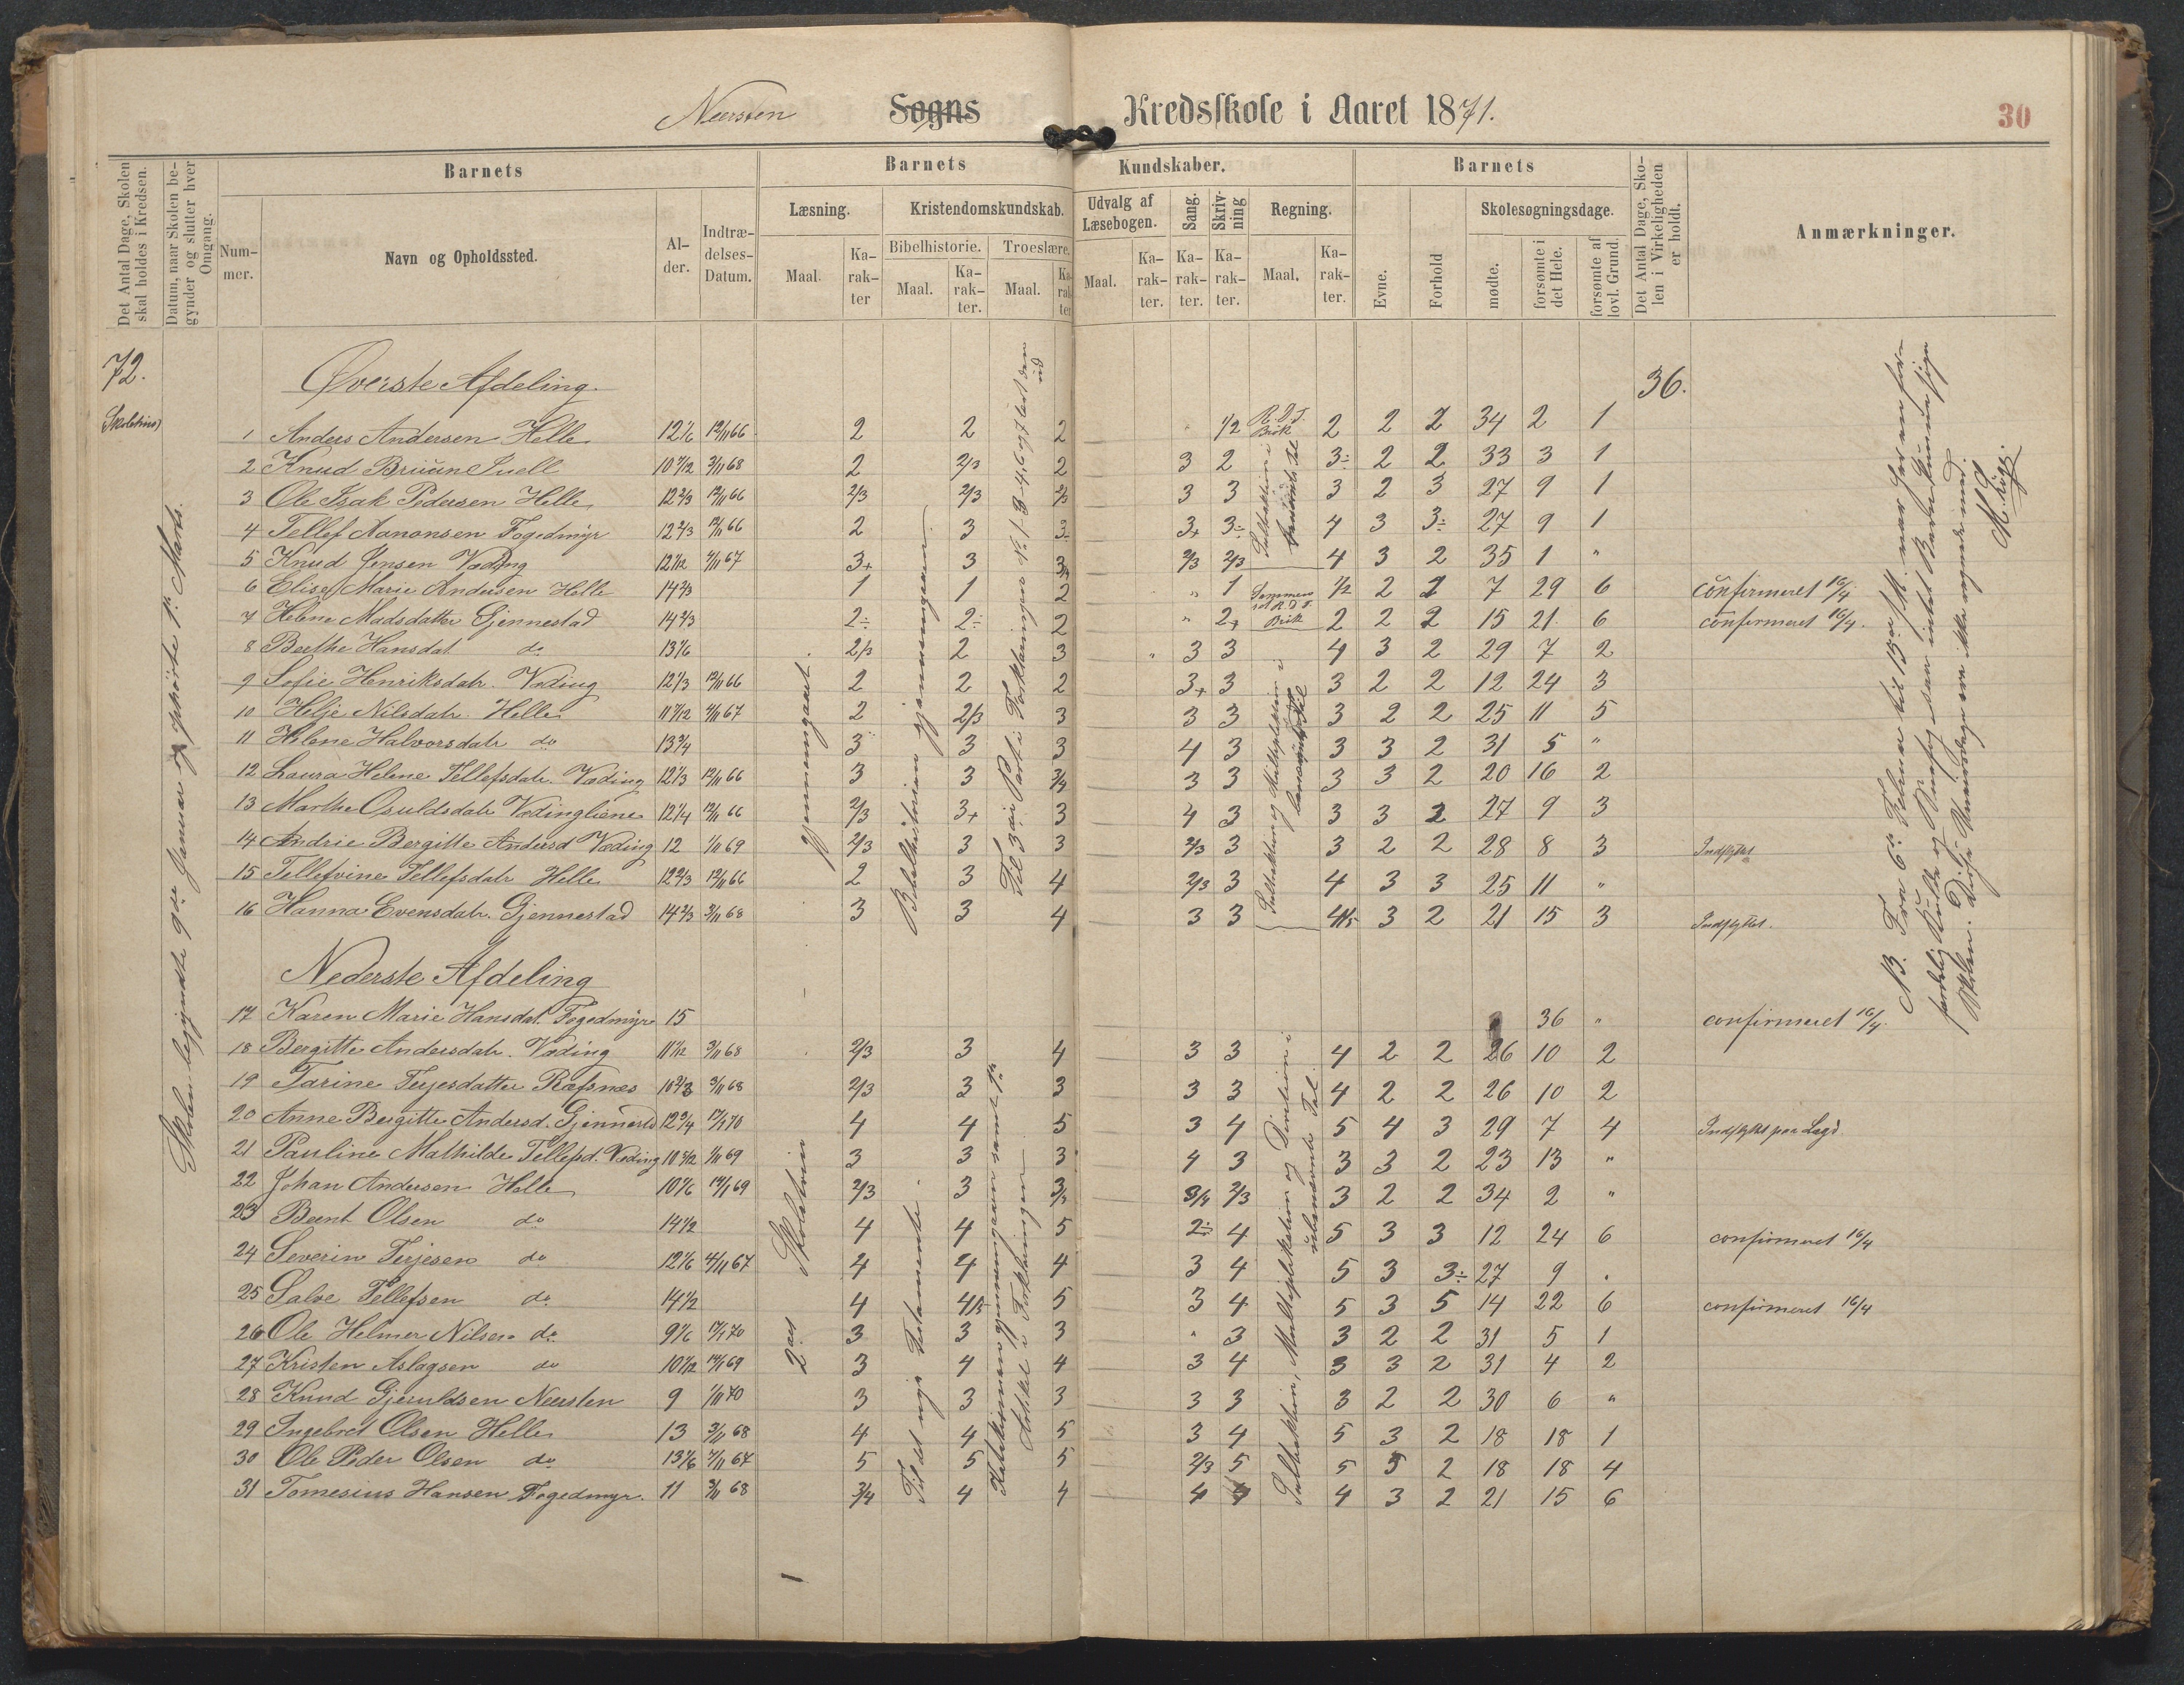 Neersten Sogns Kredsskole i Aaret 1871.
30
Det Antal Dage, Skolen skal holdes i Kredsen.
Datum, naar Skolen begynder og slutter hver Omgang.
Barnets
Nummer.
Navn og Opholdssted.
Alder.
Indtrædelses-Datum.
Barnets Kundskaber.
Læsning.
Maal.
Karakter
Kristendomskundskab.
Bibelhistorie.
Maal.
Karakter.
Troeslære.
Maal.
Karakter
Udvalg af Læsebogen.
Maal.
Karakter.
Sang.
Karakter.
Skrivning
Karakter.
Regning.
Maal.
Karakter.
Barnets
Evne.
Forhold
Skolesøgningsdage.
mødte.
forsømte i det Hele.
forsømte af lovl. Grund.
Det Antal Dage, Skolen i Virkeligheden er holdt.
Anmærkninger.
72.
Øverste Afdeling.
36.
1 Anders Andersen Helle 12 1/6 12/11 66 2 2 2 1/2 R. D. T. Brøk 2 2 2 34 2 1
2 Knud Bruune Juell 10 7/12 3/11 68 2 2/3 2 3 2 3÷ 2 2 33 3 1
3 Ole Isak Pedersen Helle 12 2/3 12/11 66 2/3 2/3 2/3 3 3 3 2 3 27 9 1
4 Tellef Aanonsen Fogedmyr 12 2/3 12/11 66 2 3 3÷ 3+ 3÷ 4 3 3÷ 27 9 1
5 Knud Jensen Væding 12 1/12 4/11 67 3+ 3 3/4 2/3 2/3 4 3 2 35 1 "
6 Elise Marie Andersen Helle 14 2/3 1 1 2 " 1 1/2 2 2 7 29 6 confirmeret 16/4
7 Helene Madsdatter Gjennestad 14 2/3 2÷ 2÷ 2 " 2+ 2 2 2 15 21 6 confirmeret 16/4.
8 Berthe Hansdat. do 13 1/6 2/3 2 3 3 3 4 3 2 29 7 2
9 Sofie Henriksdatr. Væding 12 1/3 12/11 66 2 2 2 3+ 3 3 2 2 12 24 3
10 Helje Nilsdatr. Helle 11 7/12 4/11 67 2 2/3 3 3 3 3 2 2 25 11 5
11 Helene Halvorsdatr do 13 3/4 3 3 3 4 3 3 3 2 31 5 "
12 Laura Helene Tellefsdatr. Væding 12 1/3 12/11 66 3 3 3/4 3 3 3 3 2 20 16 2
13 Marthe Osuldsdatr Vædingliene 12 1/4 12/11 66 2/3 3+ 3 4 3 3 3 2 27 9 3
14 Andrie Bergitte Andersd Væding 12 1/11 69 2/3 3 3 2/3 3 3 2 2 28 8 3 Indflyttet
15 Tellefvine Tellefsdatr Helle 12 2/3 12/11 66 2 3 4 2/3 3 4 3 3 25 11 "
16 Hanna Evensdatr. Gjennestad 14 2/3 3/11 68 3 3 4 3 3 4/5 3 2 21 15 3 Indflyttet.
Nederste Afdeling
17 Karen Marie Hansdat. Fogedmyr 15 36 " confirmeret 16/4.
18 Bergitte Andersdatr. Væding 11 1/12 3/11 68 2/3 3 4 3 3 4 2 2 26 10 2
19 Tarine Terjesdatter Ræfsnæs 10 2/3 3/11 68 2/3 3 3 3 3 4 2 2 26 10 2
20 Anne Bergitte Andersd. Gjennestd 12 3/4 17/1 70 4 4 5 3 4 5 4 3 29 7 4 Indflyttet paa Lægd
21 Pauline Mathilde Tellefsd. Væding 10 5/12 1/11 69 3 3 3 4 3 3 3 2 23 13 "
22 Johan Andersen Helle 10 1/6 14/1 69 2/3 3 3/4 3/4 2/3 3 2 2 34 2 "
23 Beent Olsen do 14 1/2 4 4 5 2÷ 4 5 3 3 12 24 6 confirmeret 16/4
24 Severin Terjesen do 12 1/6 4/11 67 4 4 4 3 4 5 3 3÷ 27 9 "
25 Salve Tellefsen do 14 1/2 4 4/5 5 3 4 5 3 5 14 22 6 confirmeret 16/4
26 Ole Helmer Nilsen do 9 1/6 17/1 70 3 3 3 " 3 3 2 2 31 5 1
27 Kristen Aslagsen do 10 1/12 14/1 69 3 4 4 3 4 3 3 2 31 4 2
28 Knud Gjeruldsen Neersten 9 1/11 70 3 3 3 3 3 3 2 2 30 6 "
29 Ingebret Olsen Helle 13 3/11 68 4 4 5 3 4 5 3 2 18 18 1
30 Ole Peder Olsen do 13 1/6 4/11 67 5 5 5 2/3 5 5 5 2 18 18 4
31 Tomesius Hansen Fogedmyr. 11 3/11 68 3/4 4 4 4 4 3 2 21 15 6
Skolen begyndte 9de Januar og ophørte 1ste Marts.
gjennemgaaet
Bibelhistorien gjennemgaaen
2det Skoletrin
Til det nye Testamente
Katekismen gjennemgaaen samt 1ste Artikel i Forklaringen
Subtraktion, Multiplikation og Division i ubenævnte Tal